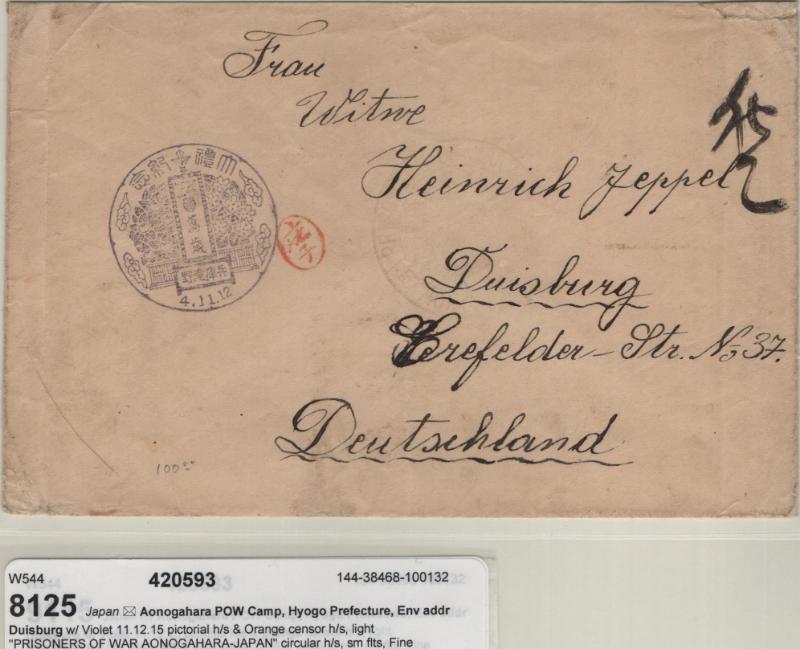 Frau
Witwe
Heinrich Jeppel
Duisburg
Crefelder-Str. No 37.
Deutschland
大禮紀念
萬歳
兵庫青野
4.11.12
100.00
W544 420593 144-38468-100132
8125 Japan ✉ Aonogahara POW Camp, Hyogo Prefecture, Env addr
Duisburg w/ Violet 11.12.15 pictorial h/s & Orange censor h/s, light
"PRISONERS OF WAR AONOGAHARA-JAPAN" circular h/s, sm flts, Fine